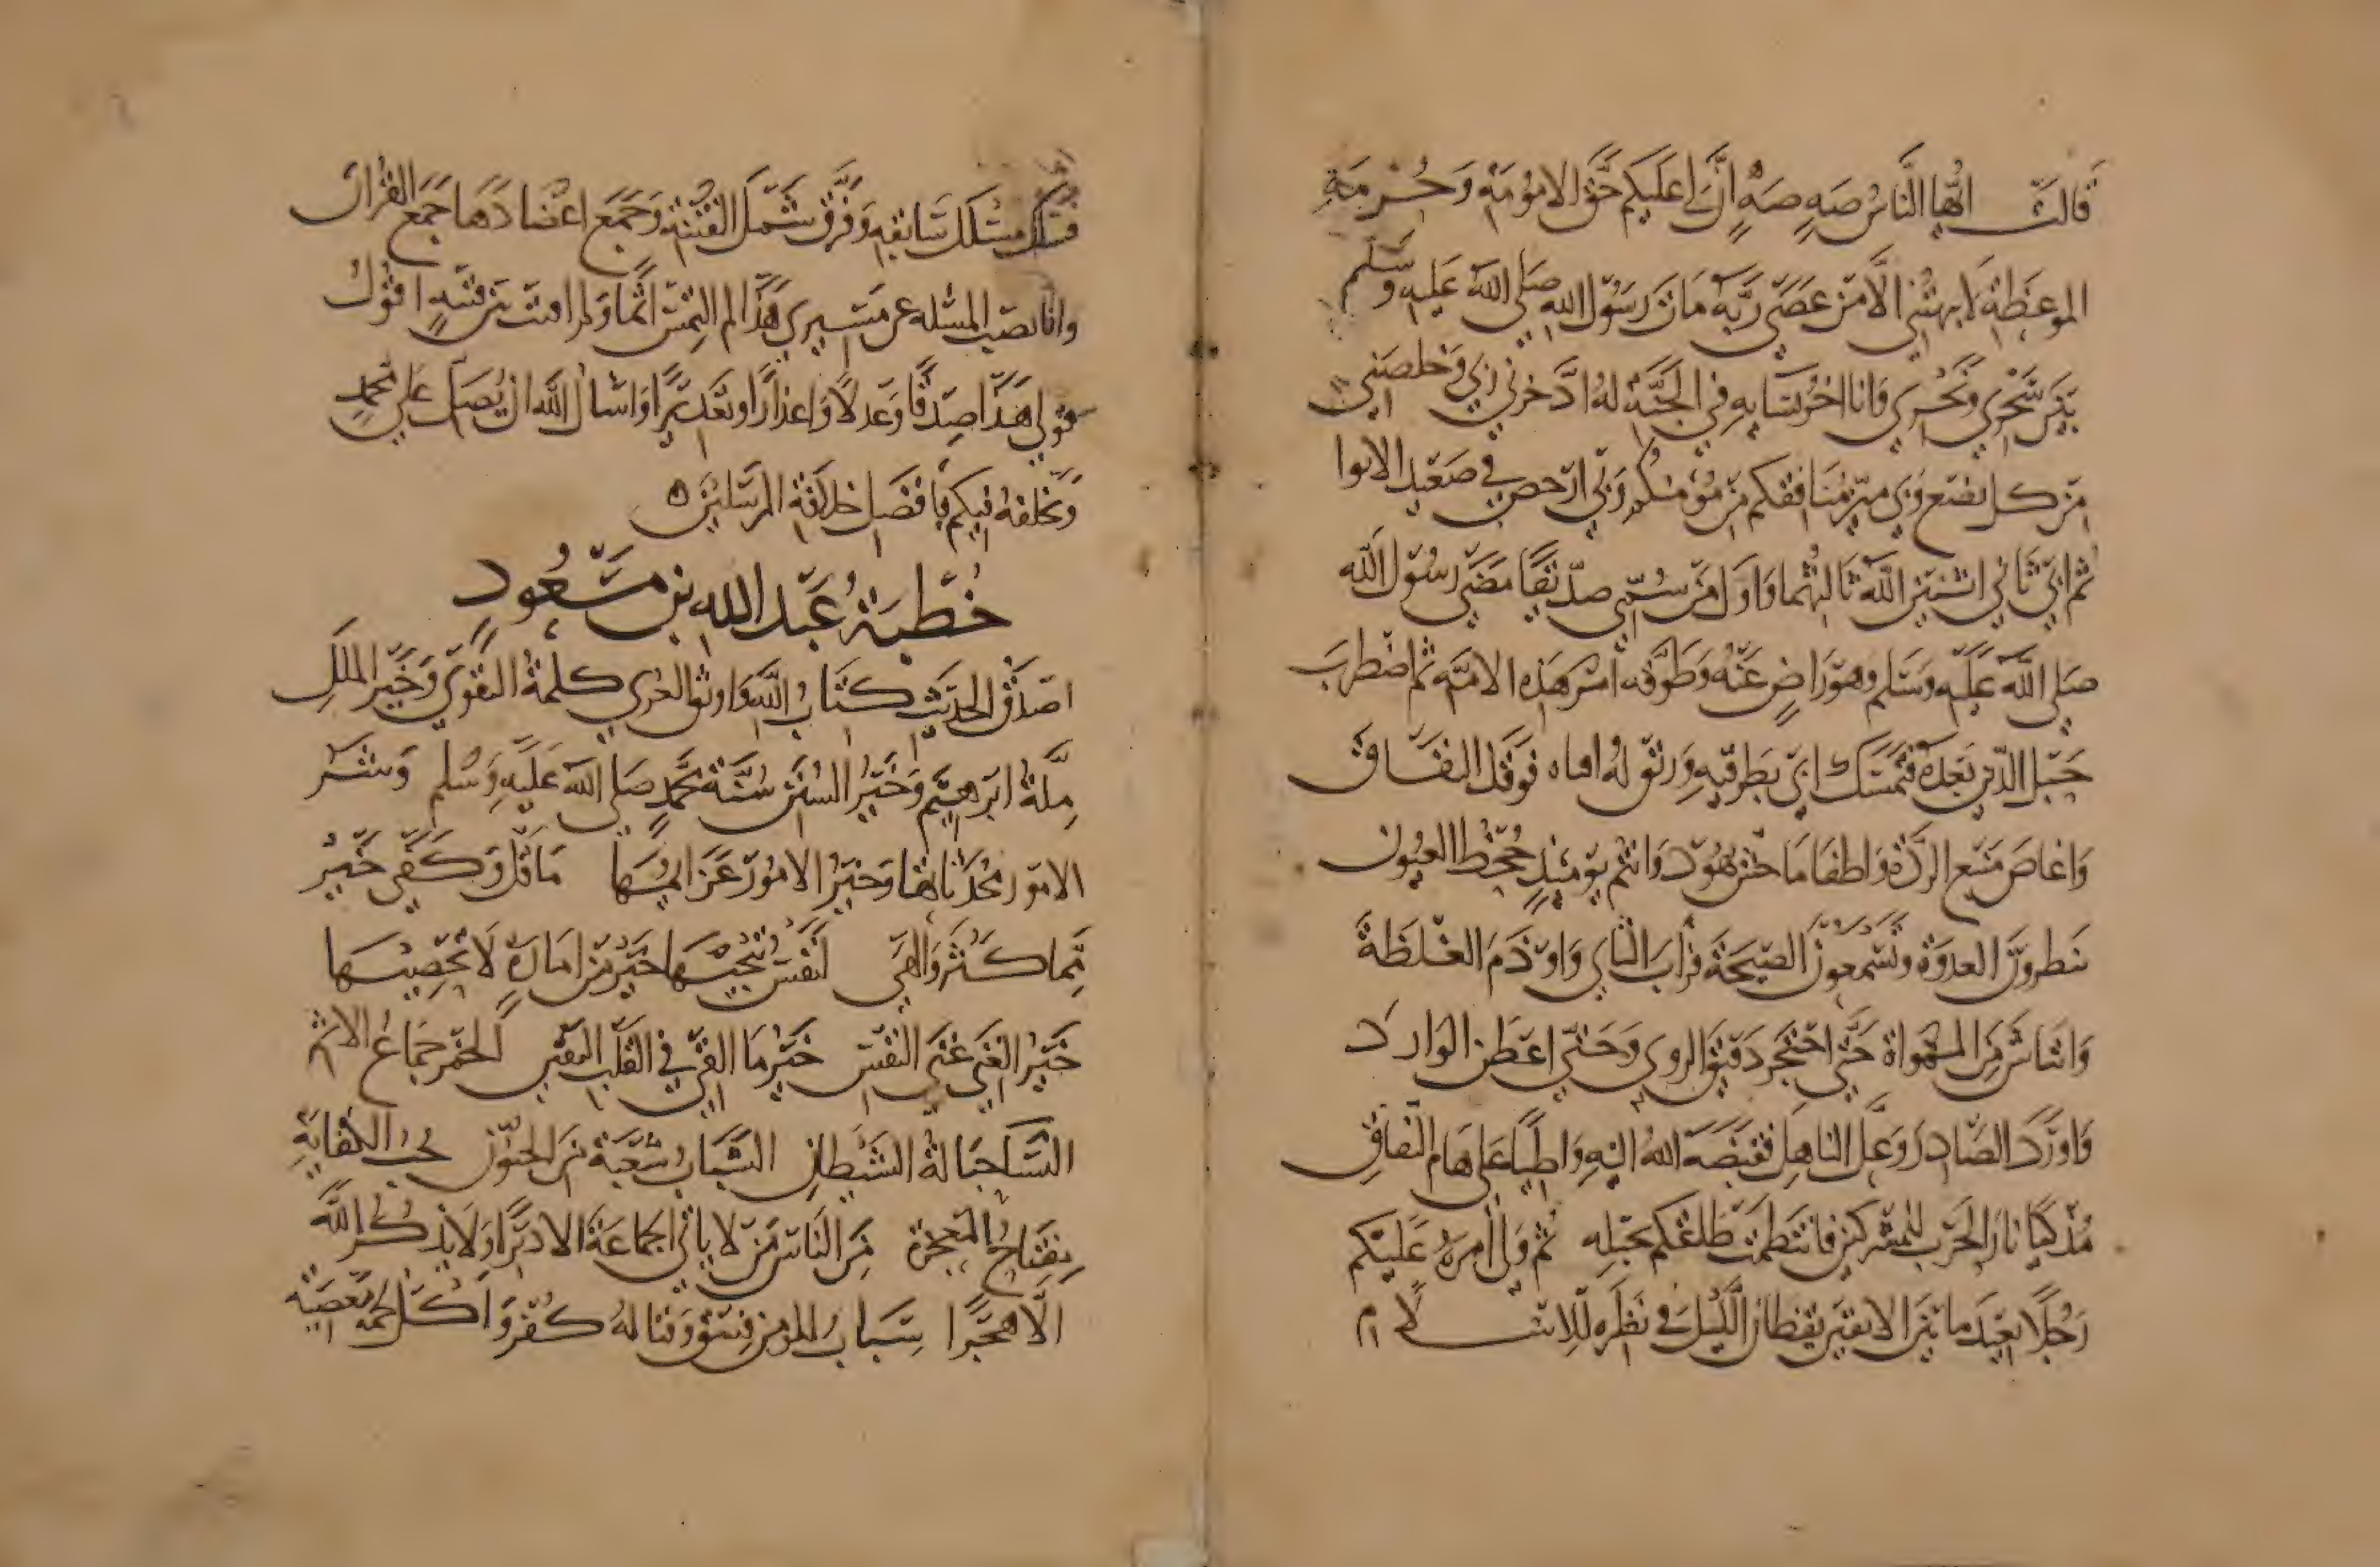 قالت ايها الناس صه صه ان لي عليكم حق الامومة وحرمة
الموعظة لا يتهمني الا من عصى ربه مات رسول الله صلى الله عليه وسلم
بين سحري ونحري وانا احدى نسايه في الجنة له ادخرني ربي وخلصني
من كل بضع وبي ميز منافقكم من مؤمنكم وبي ارخص في صعيد الابوا
ثم ابي ثاني اثنين الله ثالثهما واول من سمي صديقا مضى رسول الله
صلى الله عليه وسلم وهو راض عنه وطوقه امر هذه الامة ثم اضطرب
حبل الدين بعده فتمسك ابي بطرفيه ورتق له اثناه فوقذ النفاق
واغاض نبع الردة واطفا ما حش يهود وانتم يومئذ جحظ العيون
تنظرون العدوة وتسمعون الصيحة فراب الثاي واوذم الغلظة
وانتاش من المهواة حتى احتجر دفين الروى وحتى اعطن الوارد
واورد الصادر وعل الناهل فقبضه الله اليه واطيا على هام النفاق
مذكيا نار الحرب للمشركين فانتظمت طاعتكم بحبله ثم ولى امره عليكم
رجلا بعيد ما بين الابتين يقظان الليل في نصرة الاسلام
فسلك مسلك سابقه وفرق شمل الفتنة وجمع اعضاد ما جمع القران
وانا نصب المسئله عن مسيري هذا لم التمس اثما ولم اونث من فتنة اقول
قولي هذا صدقا وعدلا واعذارا وتعذيرا واسال الله ان يصلي على محمد
ويخلفه فيكم بافضل خلافة المرسلين ه
خطبة عبد الله بن مسعود
اصدق الحديث كتاب الله واوثق العرى كلمة التقوى وخير الملل
ملة ابرهيم وخير السنن سنة محمد صلى الله عليه وسلم وشر
الامور محدثاتها وخير الامور عزايمها ما قل وكفى خير
مما كثر والهى لنفس تنجيها خير من امارة لا تحصيها
خير الغنى غنى النفس خير ما القي في القلب اليقين الخمر جماع الاثم
النسا حبالة الشيطان الشباب شعبة من الجنون حب الكفاية
مفتاح المعجزة من الناس من لا ياتي الجماعة الا دبرا ولا يذكر الله
الا هجرا سباب المؤمن فسق وقتاله كفر واكل لحمه معصية